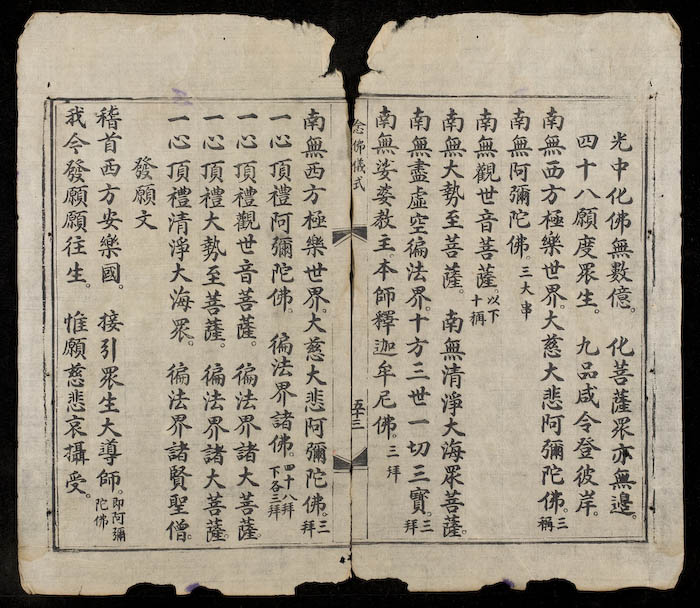 光中化佛無數億。化菩薩眾亦無邊。
四十八願度眾生。九品咸令登彼岸。
南無西方極樂世界。大慈大悲阿彌陀佛。三稱
南無阿彌陀佛。三大串
南無觀世音菩薩。以下十稱
南無大勢至菩薩。南無清淨大海眾菩薩。
南無盡虛空徧法界。十方三世一切三寶。三拜
南無娑婆教主。本師釋迦牟尼佛。三拜
念佛儀式
五十三
南無西方極樂世界。大慈大悲阿彌陀佛。三拜
一心頂禮阿彌陀佛。徧法界諸佛。四十八拜下各三拜
一心頂禮觀世音菩薩。徧法界諸大菩薩。
一心頂禮大勢至菩薩。徧法界諸大菩薩。
一心頂禮清淨大海眾。徧法界諸賢聖僧。
發願文
稽首西方安樂國。接引眾生大導師。即阿彌陀佛
我今發願願往生。惟願慈悲哀攝受。